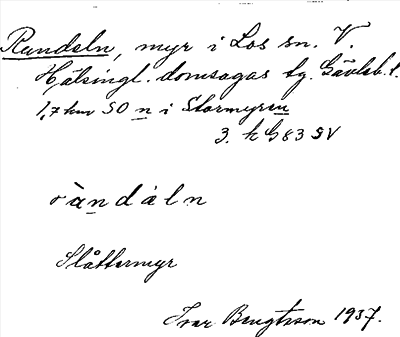 Randeln, myr i Los sn. V.
Hälsingl. domsagas tg. Gävleb. l.
1,7 km SO n i Stormyren
3. k G 83 SV
ràndáln
Slåttermyr
Ivar Bengtsson 1937.